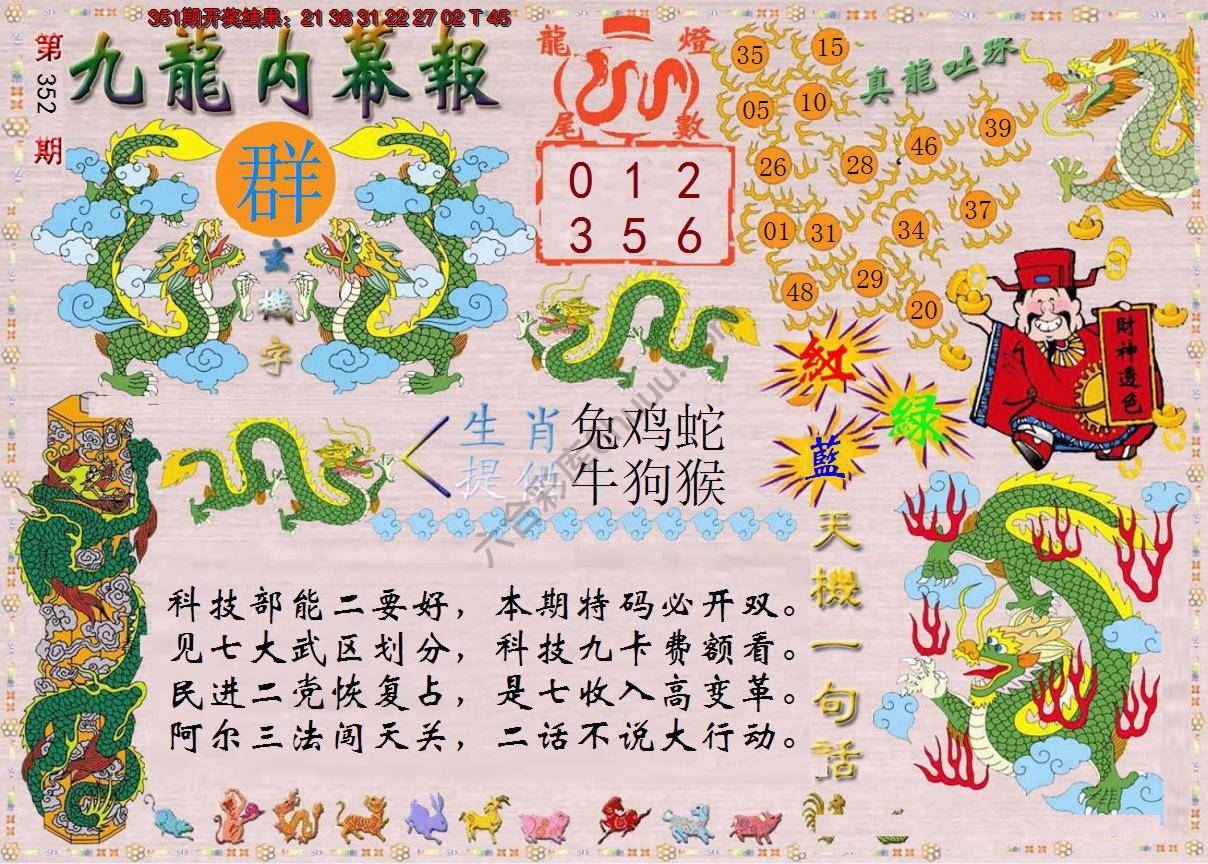 351期开奖结果：21 38 31 22 27 02 T 45
第 352 期
九龍内幕報
群
玄機字
龍燈
尾數
0 1 2
3 5 6
真龍吐珠
35 15
05 10
46 39
26 28
37
01 31 34
29
48 20
財神透色
紅
綠
藍
生肖 兔鸡蛇
提供 牛狗猴
六合彩库
天機一句話
科技部能二要好，本期特码必开双。
见七大武区划分，科技九卡费额看。
民进二党恢复占，是七收入高变革。
阿尔三法闯天关，二话不说大行动。